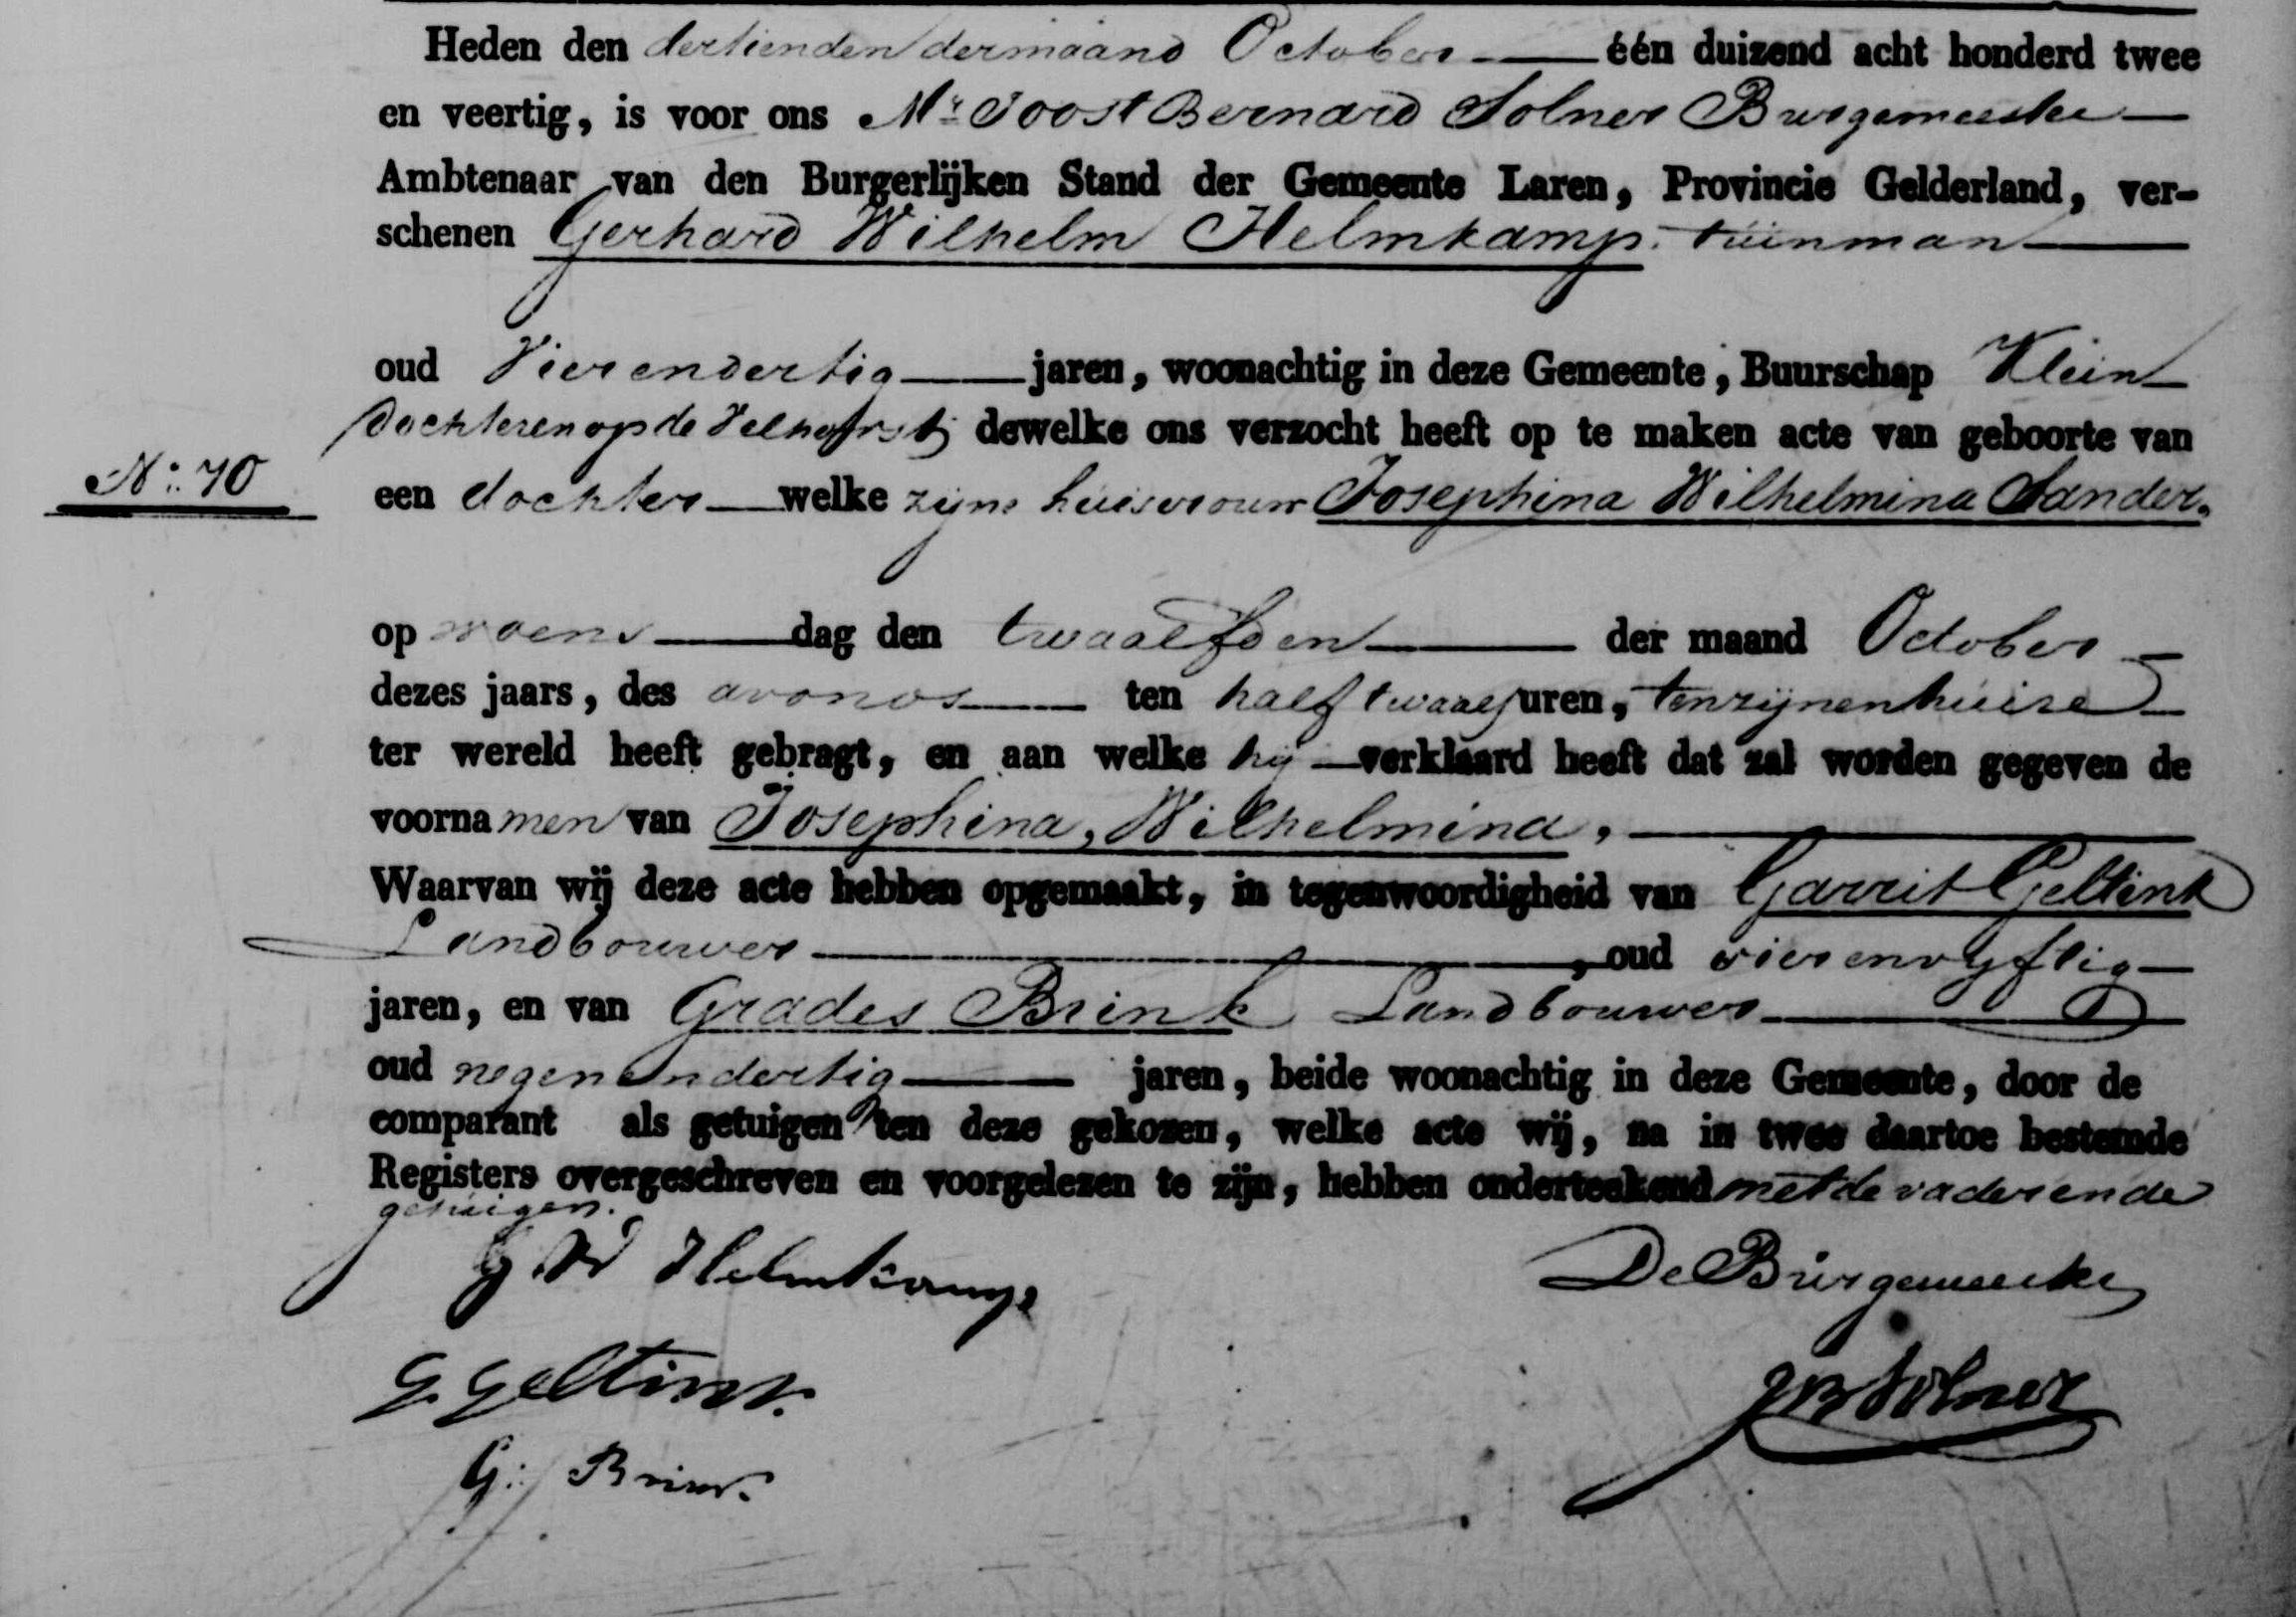 Heden den dertienden der maand October één duizend acht honderd twee
en veertig, is voor ons Mr. Joost Bernard Solner Burgemeester
Ambtenaar van den Burgerlijken Stand der Gemeente Laren, Provincie Gelderland, ver-
schenen Gerhard Wilhelm Helmkamp. tuinman
oud Vierendertig jaren, woonachtig in deze Gemeente, Buurschap Klein
Dochteren op de Velhorst, dewelke ons verzocht heeft op te maken acte van geboorte van
No. 70
een dochter welke zijne huisvrouw Josephina Wilhelmina Sander.
op woens dag den twaalfden der maand October
dezes jaars, des avonds ten half twaalf uren, ten zijnen huize
ter wereld heeft gebragt, en aan welke hij verklaard heeft dat zal worden gegeven de
voornamen van Josephina, Wilhelmina,
Waarvan wij deze acte hebben opgemaakt, in tegenwoordigheid van Garrit Geltink
Landbouwer, oud vierenvyftig
jaren, en van Grades Brink Landbouwer
oud negenendertig jaren, beide woonachtig in deze Gemeente, door de
comparant als getuigen ten deze gekozen, welke acte wij, na in twee daartoe bestemde
Registers overgeschreven en voorgelezen te zijn, hebben onderteekend met de vader en de
getuigen.
G W Helmkamp
De Burgemeester
G. Geltink.
JB Solner
G: Brink.